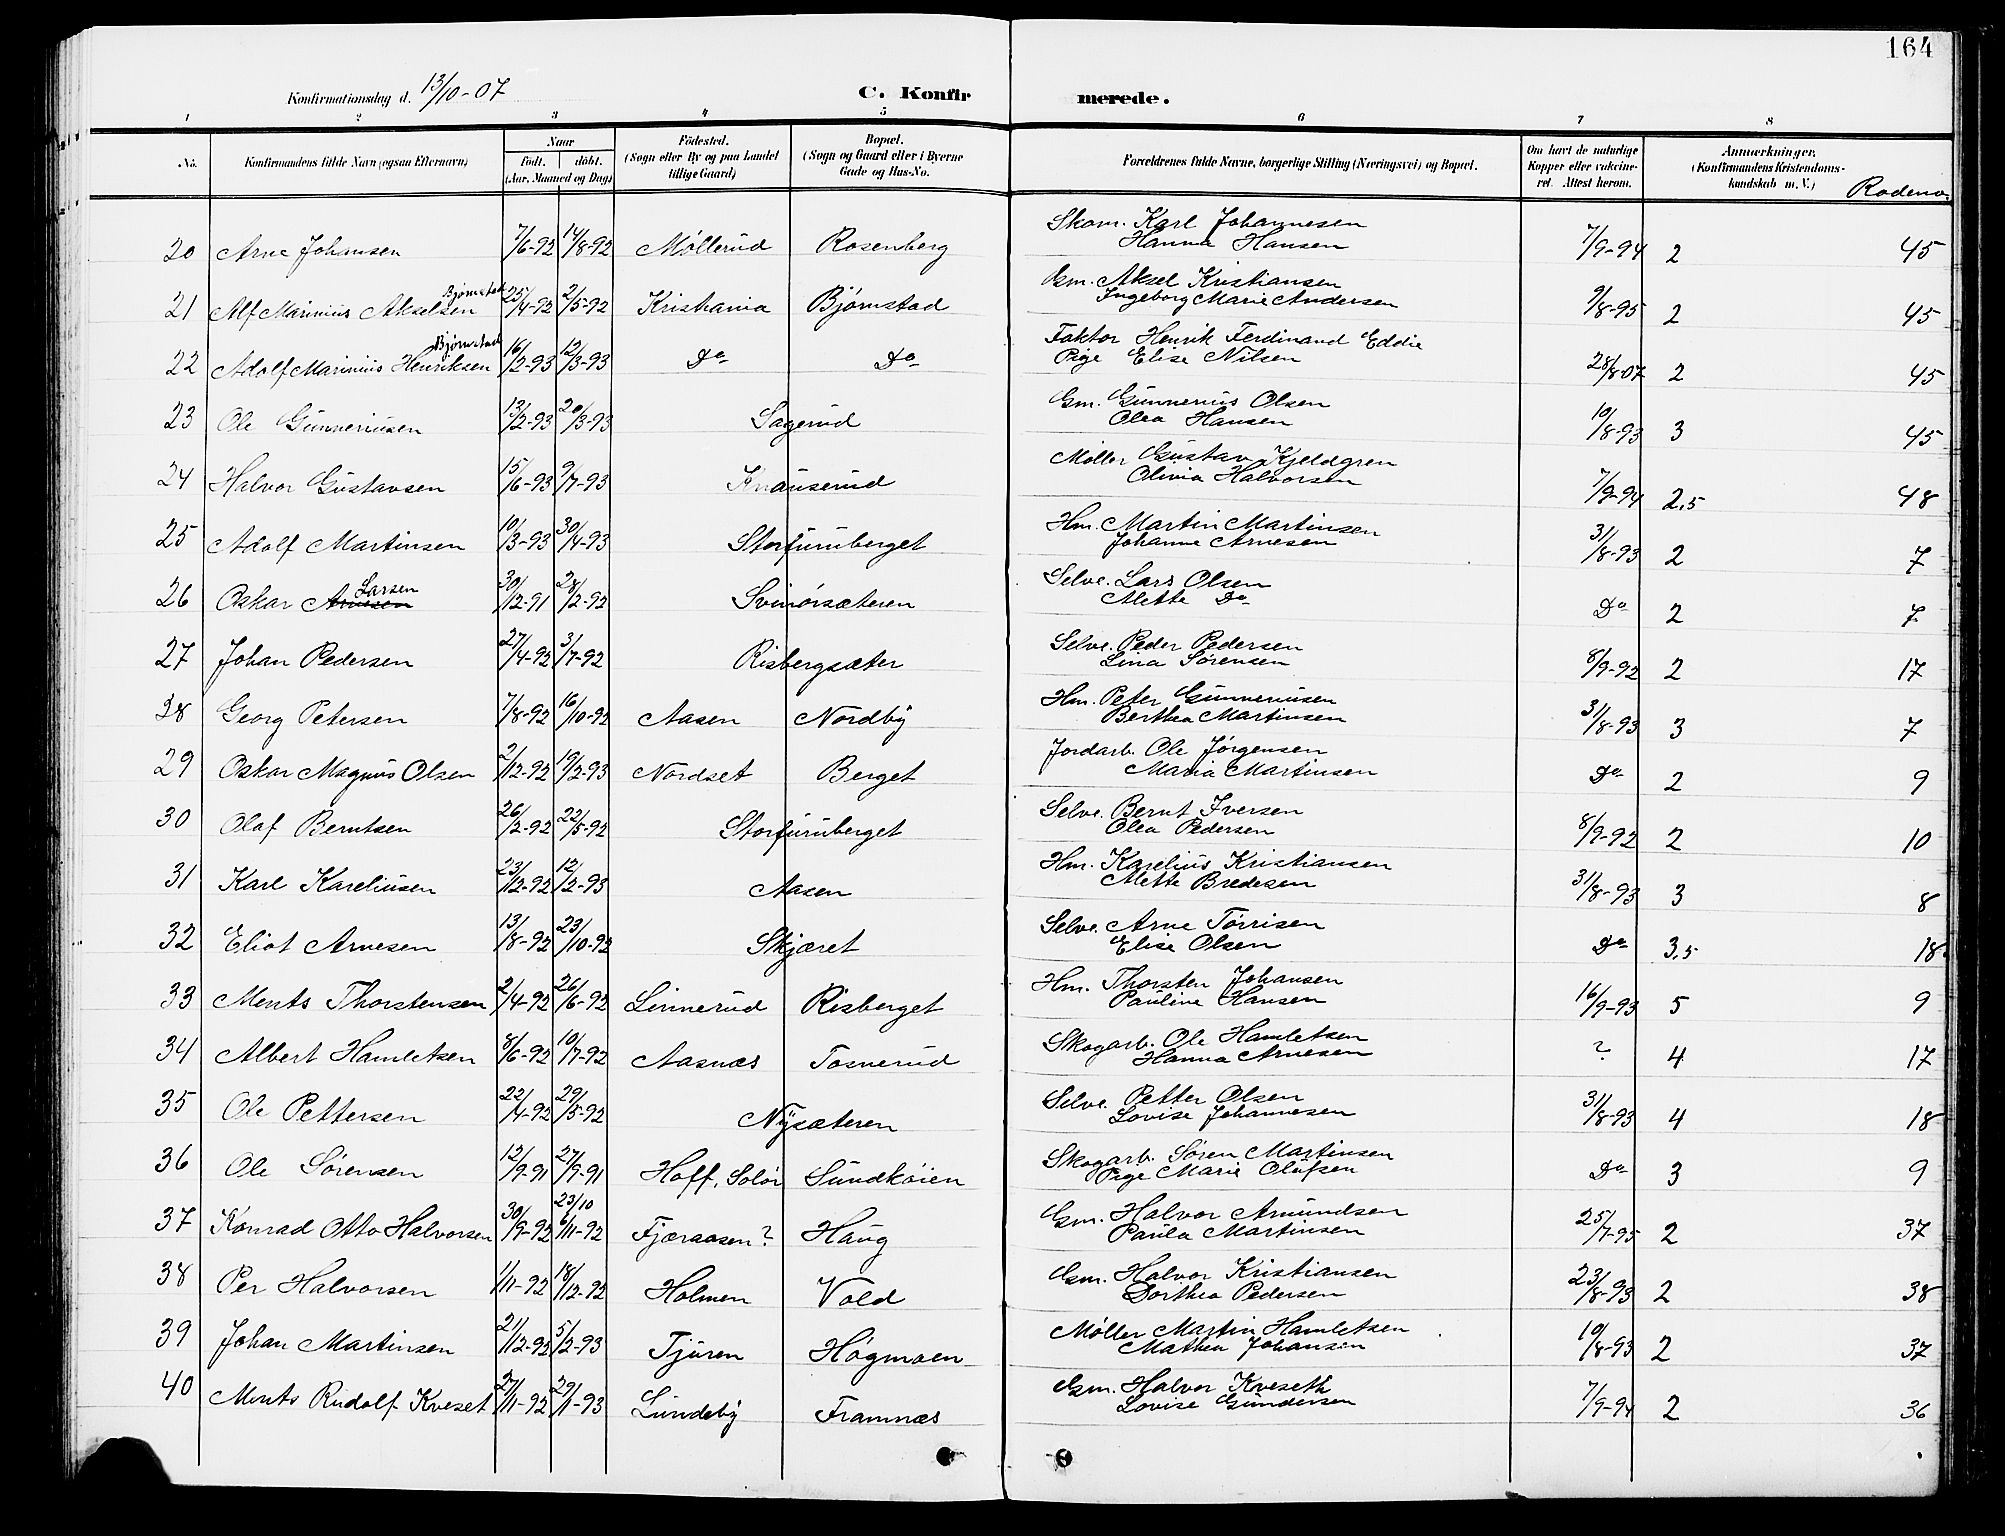 164
Konfirmationsdag d. 13/10-07 C. Konfirmerede.
1 2 3 4 5 6 7 8
No. Konfirmandens fulde Navn (ogsaa Efternavn) Naar født. døbt. (Aar, Maaned og Dag) Födested. (Sogn eller By og paa Landet tillige Gaard) Bopæl. (Sogn og Gaard eller i Byerne Gade og Hus-No. Forældrenes fulde Navne, borgerlige Stilling (Næringsvei) og Bopæl. Om havt de naturlige Kopper eller vakcineret. Attest herom. Anmærkninger. (Konfirmandens Kristendomskundskab m. V.) Rodeno.
20 Arne Johansen 7/6-92 14/8-92 Møllerud Rosenberg Skom. Karl Johannesen Hanna Hansen 7/9-94 2 45
21 Alf Marinius Akselsen Bjørnstad 25/4-92 2/5-92 Kristiania Bjørnstad Gm. Aksel Kristiansen Ingeborg Marie Andersen 9/8-95 2 45
22 Adolf Marinius Henriksen Bjørnstad 16/2-93 12/3-93 Do Do Faktor Henrik Ferdinand Eddie Pige Elise Nilsen 28/8-07 2 45
23 Ole Gunneriusen 13/2-93 20/3-93 Sagerud Gm. Gunnerius Olsen Olea Hansen 10/8-93 3 45
24 Halvor Gustavsen 15/6-93 9/7-93 Knauserud Møller Gustav Kjeldgren Olivia Halvorsen 7/9-94 2,5 48
25 Adolf Martinsen 10/3-93 30/4-93 Storfuruberget Hm. Martin Martinsen Johanne Arnesen 31/8-93 2 7
26 Oskar Arnesen Larsen 30/12-91 28/2-92 Svinørsæteren Selve. Lars Olsen Alette Do Do 2 7
27 Johan Pedersen 27/4-92 3/7-92 Risbergsæter Selve. Peder Pedersen Lina Sørensen 8/9-92 2 17
28 Georg Petersen 7/8-92 16/10-92 Aasen Nordby Hm. Peter Gunneriusen Berthea Martinsen 31/8-93 3 7
29 Oskar Magnus Olsen 2/12-92 19/2-93 Nordset Berget Jordarb. Ole Jørgensen Maria Martinsen Do 2 9
30 Olaf Berntsen 26/2-92 22/5-92 Storfuruberget Selve. Bernt Iversen Olea Pedersen 8/9-92 2 10
31 Karl Kareliusen 23/12-92 12/2-93 Aasen Hm. Karelius Kristiansen Alette Bredesen 31/8-93 3 8
32 Eliot Arnesen 13/8-92 23/10-92 Skjæret Selve. Arne Tørrisen Elise Olsen Do 3,5 18
33 Ments Thorstensen 2/4-92 26/6-92 Linnerud Risberget Hm. Thorsten Johansen Pauline Hansen 16/9-93 5 9
34 Albert Hamletsen 8/6-92 10/7-92 Aasnæs Tosnerud Skogarb. Ole Hamletsen Hanna Arnesen ? 4 17
35 Ole Pettersen 22/4-92 29/5-92 Nysæteren Selve. Petter Olsen Lovise Johannesen 31/8-93 4 18
36 Ole Sørensen 12/9-91 27/9-91 Hoff, Solør Sundkøien Skogarb. Søren Martinsen Pige Marie Olufsen Do 3 9
37 Konrad Otto Halvorsen 30/9-92 23/10 6/11-92 Fjæraasen? Haug Gm. Halvor Amundsen Paula Martinsen 25/7-95 2 37
38 Per Halvorsen 1/11-92 18/12-92 Holmen Vold Gm. Halvor Kristiansen Dorthea Pedersen 23/8-93 2 38
39 Johan Martinsen 21/12-92 5/2-93 Tjuren Høgmoen Møller Martin Hamletsen Mathea Johansen 10/8-93 2 37
40 Ments Rudolf Kveset 27/11-92 29/1-93 Lundeby Framnæs Gm. Halvor Kveseth Lovise Gundersen 7/9-94 2 36